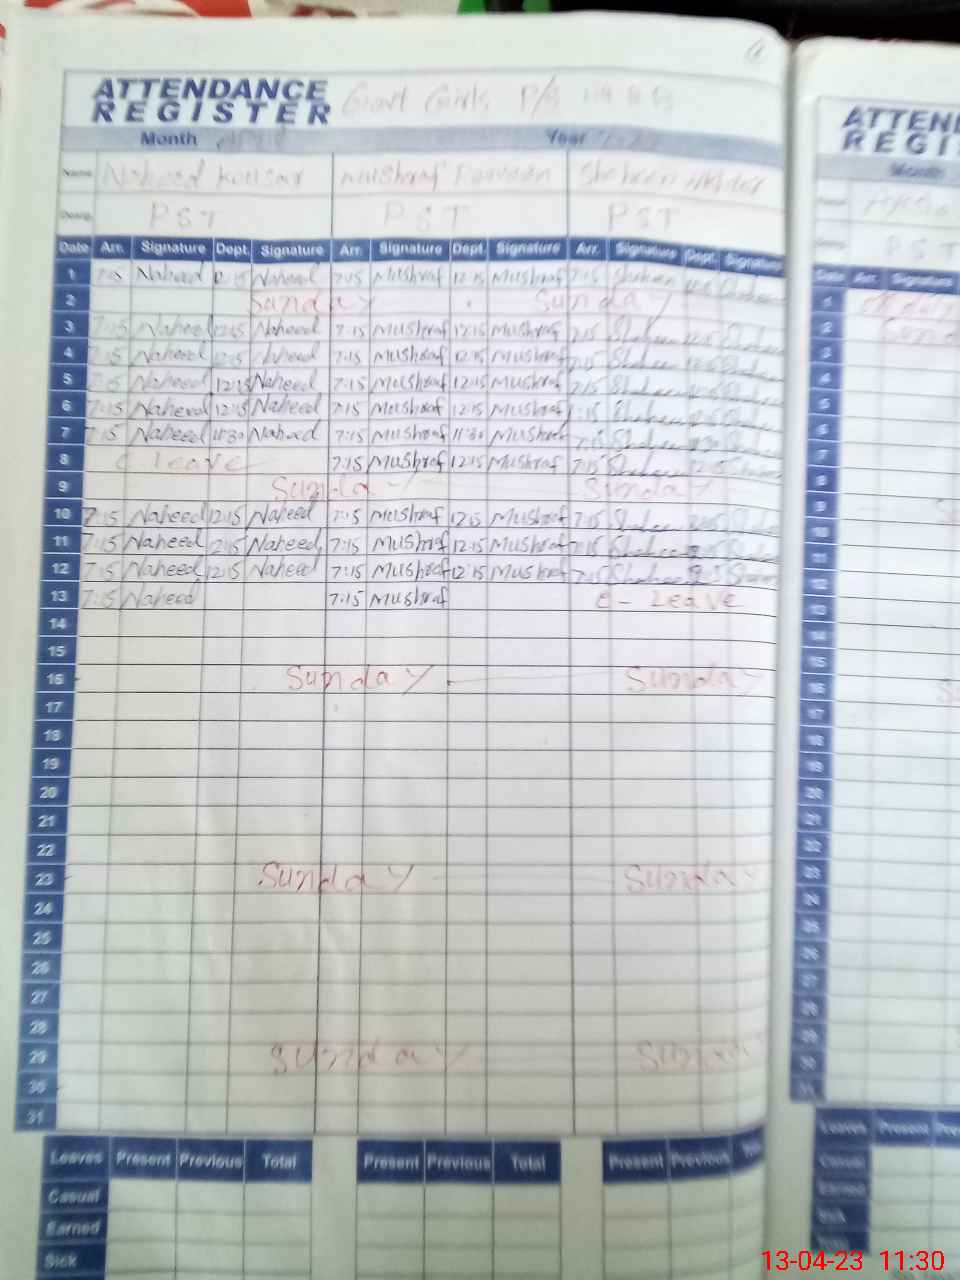 ATTENDANCE
REGISTER
Govt Girls P/S
Month Year
Name Naheed Kousar Mushraf Parveen Shaheen Akhtar
Desig. PST PST PST
Date Arr. Signature Dept. Signature Arr. Signature Dept. Signature Arr. Signature Dept. Signature
1 7:15 Naheed 12:15 Naheed 7:15 Mushraf 12:15 Mushraf 7:15 Shaheen Shaheen
2 Sunday Sunday
3 7:15 Naheed 12:15 Naheed 7:15 Mushraf 12:15 Mushraf 7:15 Shaheen 12:15 Shaheen
4 7:15 Naheed 12:15 Naheed 7:15 Mushraf 12:15 Mushraf 7:15 Shaheen 12:15 Shaheen
5 7:15 Naheed 12:15 Naheed 7:15 Mushraf 12:15 Mushraf 7:15 Shaheen 12:15 Shaheen
6 7:15 Naheed 12:15 Naheed 7:15 Mushraf 12:15 Mushraf 7:15 Shaheen 12:15 Shaheen
7 7:15 Naheed 11:30 Naheed 7:15 Mushraf 11:30 Mushraf 7:15 Shaheen 11:30 Shaheen
8 C Leave 7:15 Mushraf 12:15 Mushraf 7:15 Shaheen 12:15 Shaheen
9 Sunday Sunday
10 7:15 Naheed 12:15 Naheed 7:15 Mushraf 12:15 Mushraf 7:15 Shaheen 12:15 Shaheen
11 7:15 Naheed 12:15 Naheed 7:15 Mushraf 12:15 Mushraf 7:15 Shaheen Shaheen
12 7:15 Naheed 12:15 Naheed 7:15 Mushraf 12:15 Mushraf 7:15 Shaheen Shaheen
13 7:15 Naheed 7:15 Mushraf C - Leave
14
15
16 Sunday Sunday
17
18
19
20
21
22
23 Sunday Sunday
24
25
26
27
28
29 Sunday Sunday
30
31
Leaves Present Previous Total Present Previous Total Present Previous
Casual
Earned
Sick
ATTEN
REGIS
Month
PST
Date Arr. Signature
1
2
3
4
5
6
7
8
9
10
11
12
13
14
15
16
17
18
19
20
21
22
23
24
25
26
27
28
29
30
31
Leaves Present Pre
Casual
Earned
Sick
13-04-23 11:30